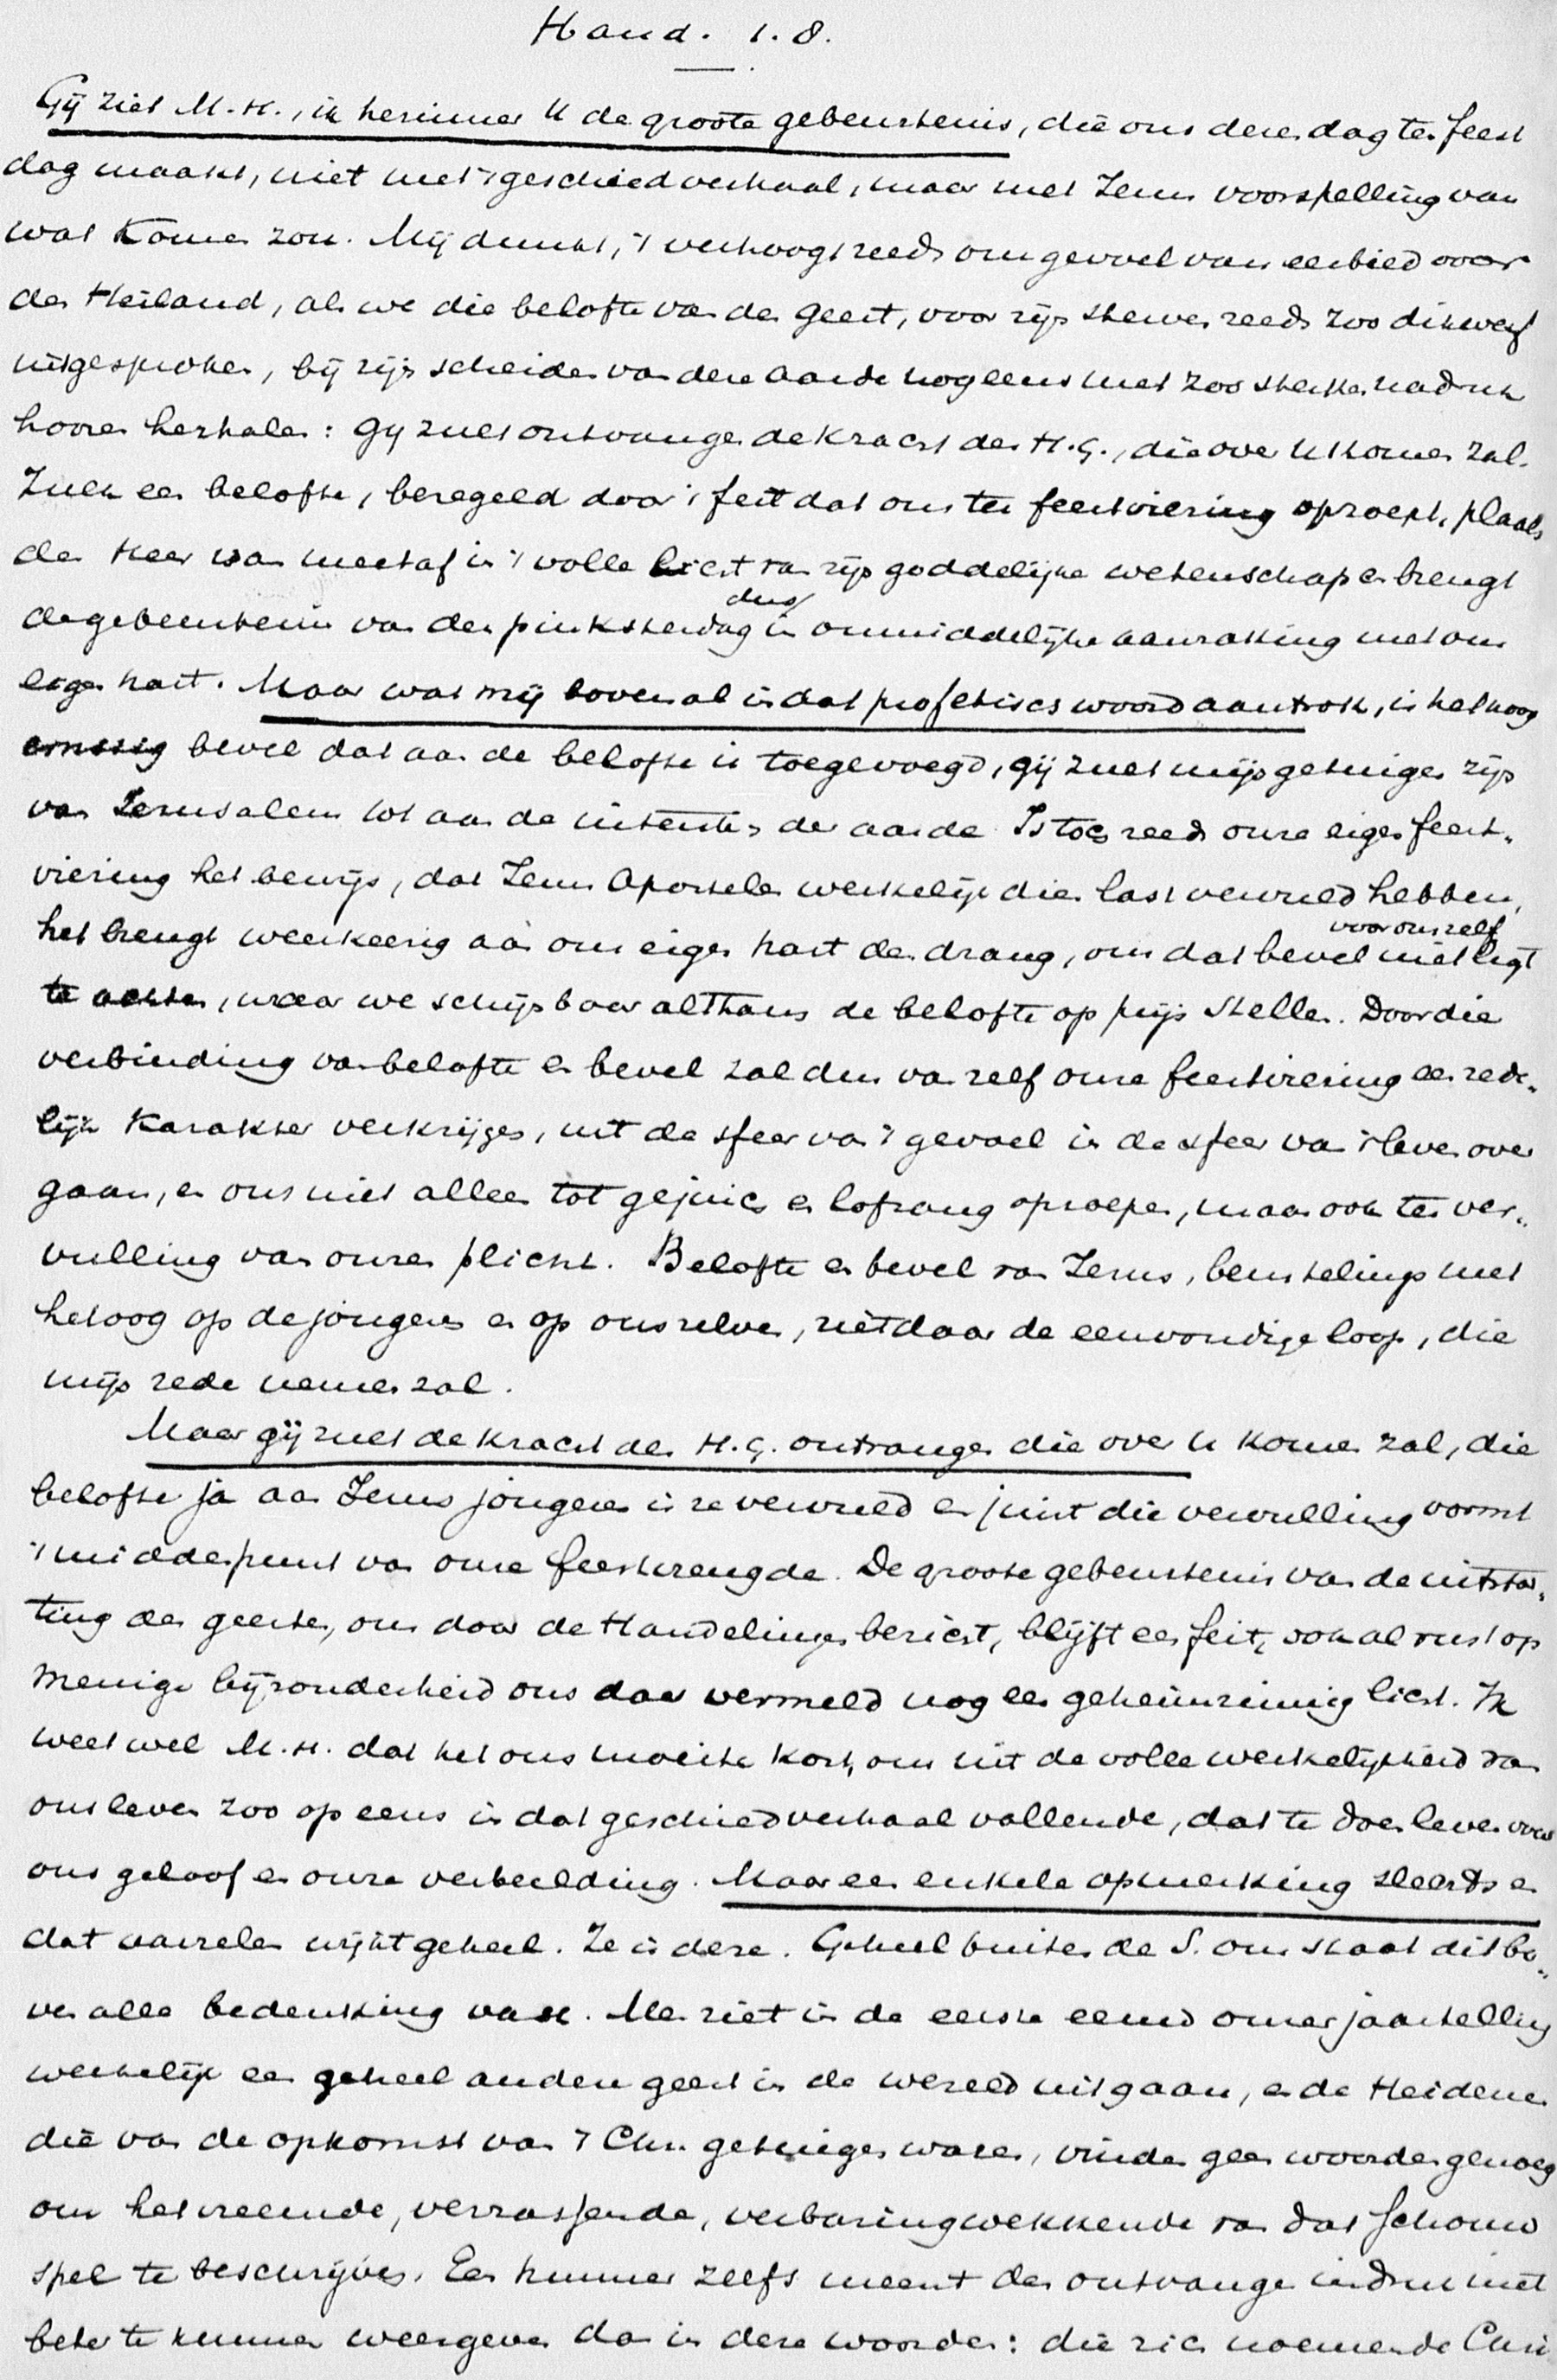 Hand. 1.8.
Gij ziet M.H., ik herinner U de groote gebeurtenis, die ons dezen dag ten feest
dag maakt, niet met 't geschiedverhaal, maar met Jezus voorspelling van
wat komen zou. Mij dunkt, 't verhoogt reeds ons gevoel van eerbied voor
den Heiland, als we die belofte van den geest, voor zijn sterven reeds zoo dikwerf
uitgesproken, bij zijn scheiden van deze aarde nog eens met zoo sterken nadruk
hooren herhalen: gij zult ontvangen de kracht des H.G., die over U komen zal.
Zulk een belofte, bezegeld door 't feit dat ons ten feestviering oproept, plaats
den Heer van meet af in 't volle licht van zijn goddelijke wetenschap en brengt
de gebeurtenis van den pinksterdag dus in onmiddelijke aanraking met ons
eigen hart. Maar wat mij bovenal in dat profetisch woord aantrok, is het hoog
ernstig bevel dat aan de belofte is toegevoegd, gij zult mijn getuigen zijn
van Jerusalem tot aan de uiterste der aarde. Is toch reeds onze eigen feest-
viering het bewijs, dat Jezus Apostelen werkelijk dien last vervuld hebben,
het brengt weerkeerig aan ons eigen hart den drang, om dat bevel voor ons zelf niet ligt
te achten, waar we schijnbaar althans de belofte op prijs stellen. Door die
verbinding van belofte en bevel zal dus van zelf onze feestviering een rede-
lijk karakter verkrijgen, uit de sfeer van 't gevoel in de sfeer van 't leven over
gaan, en ons niet alleen tot gejuich en lofzang oproepen, maar ook ter ver-
vulling van onzen plicht. Belofte en bevel van Jezus, beurtelings met
het oog op de jongeren en op onszelven, ziet daar de eenvoudige loop, die
mijn rede nemen zal.
Maar gij zult de kracht des H.G. ontvangen die over U komen zal, die
belofte ja aan Jezus jongeren is ze vervuld en juist die vervulling vormt
't middenpunt van onze feestvreugde. De groote gebeurtenis van de uitstor-
ting des geestes, ons door de Handelingen bericht, blijft een feit, ook al rust op
menige bijzonderheid ons daar vermeld nog een geheimzinnig licht. Ik
weet wel M.H. dat het ons moeite kost, om uit de volle werkelijkheid van
ons leven zoo op eens in dat geschiedverhaal vallende, dat te doen leven voor
ons geloof en onze verbeelding. Maar een enkele opmerking slechts en
dat aarzelen wijkt geheel. Ze is deze. Geheel buiten de S. om staat dit bo-
ven alle bedenking vast. Men ziet in de eerste eeuw onzer jaartelling
werkelijk een geheel anderen geest in de wereld uitgaan, en de Heidenen
die van de opkomst van 't Chr. getuigen waren, vinden geen woorden genoeg
om het vreemde, verrassende, verbazingwekkende van dat schouw
spel te beschrijven. Een hunner zelfs meent den ontvangen indruk niet
beter te kunnen weergeven dan in deze woorden: die zich noemende Chri